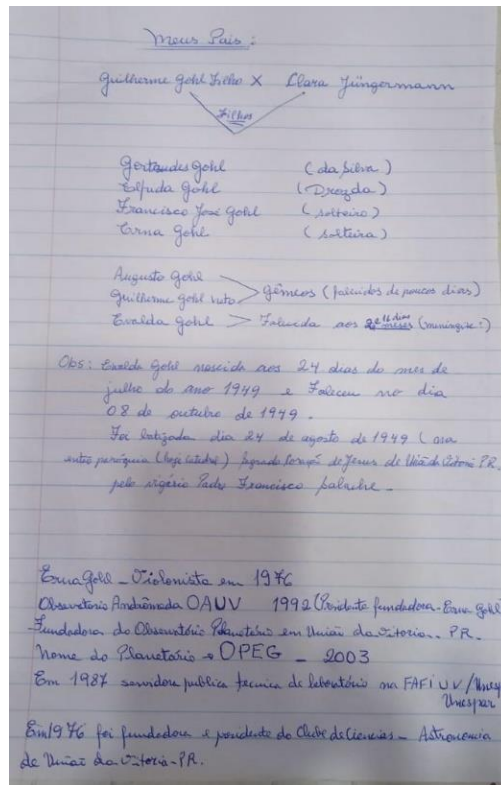 Meus Pais:
Guilherme Gohl Filho X Clara Jüngermann
Filhos
Gertrudes Gohl (da Silva)
Elfrida Gohl (Drozda)
Francisco José Gohl (solteiro)
Erna Gohl (solteira)
Augusto Gohl
Guilherme Gohl neto > gêmeos (falecidos de poucos dias)
Evalda Gohl > Falecida aos 2 e 16 dias meses (meningite?)
Obs: Evalda Gohl nascida aos 24 dias do mês de
julho do ano 1949 e Faleceu no dia
08 de outubro de 1949.
Foi batizada dia 24 de agosto de 1949 (na
então paróquia (hoje catedral) Sagrado Coração de Jesus de União da Vitória PR.
pelo vigário Padre Francisco
Erna Gohl - Violonista em 1976
Observatório Andrômeda OAUV 1992 (Presidente fundadora - Erna Gohl
Fundadora do Observatório Planetário em União da Vitoria.. PR.
Nome do Planetário - OPEG - 2003
Em 1987 servidora publica tecnica de laboratório na FAFIUV/
Unespar
Em 1976 foi fundadora e presidente do Clube de Ciencias - Astronomia
de União da Vitoria-PR.